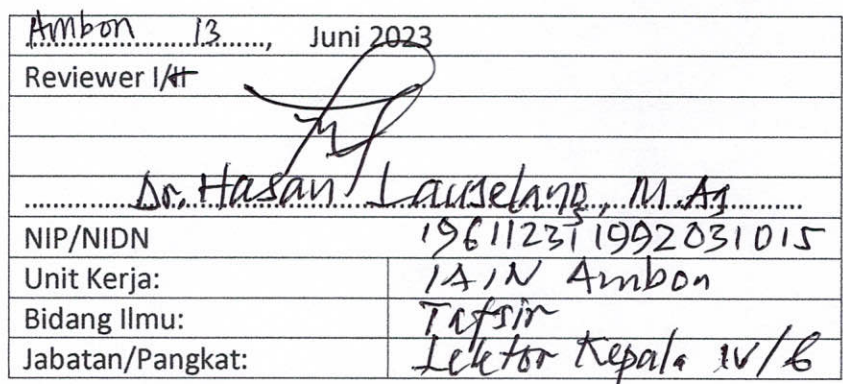 Ambon 13 ......, Juni 2023
Reviewer I/II
Dr. Hasan Lauselang, M.Ag
NIP/NIDN 196112311992031015
Unit Kerja: IAIN Ambon
Bidang Ilmu: Tafsir
Jabatan/Pangkat: Lektor Kepala IV/b